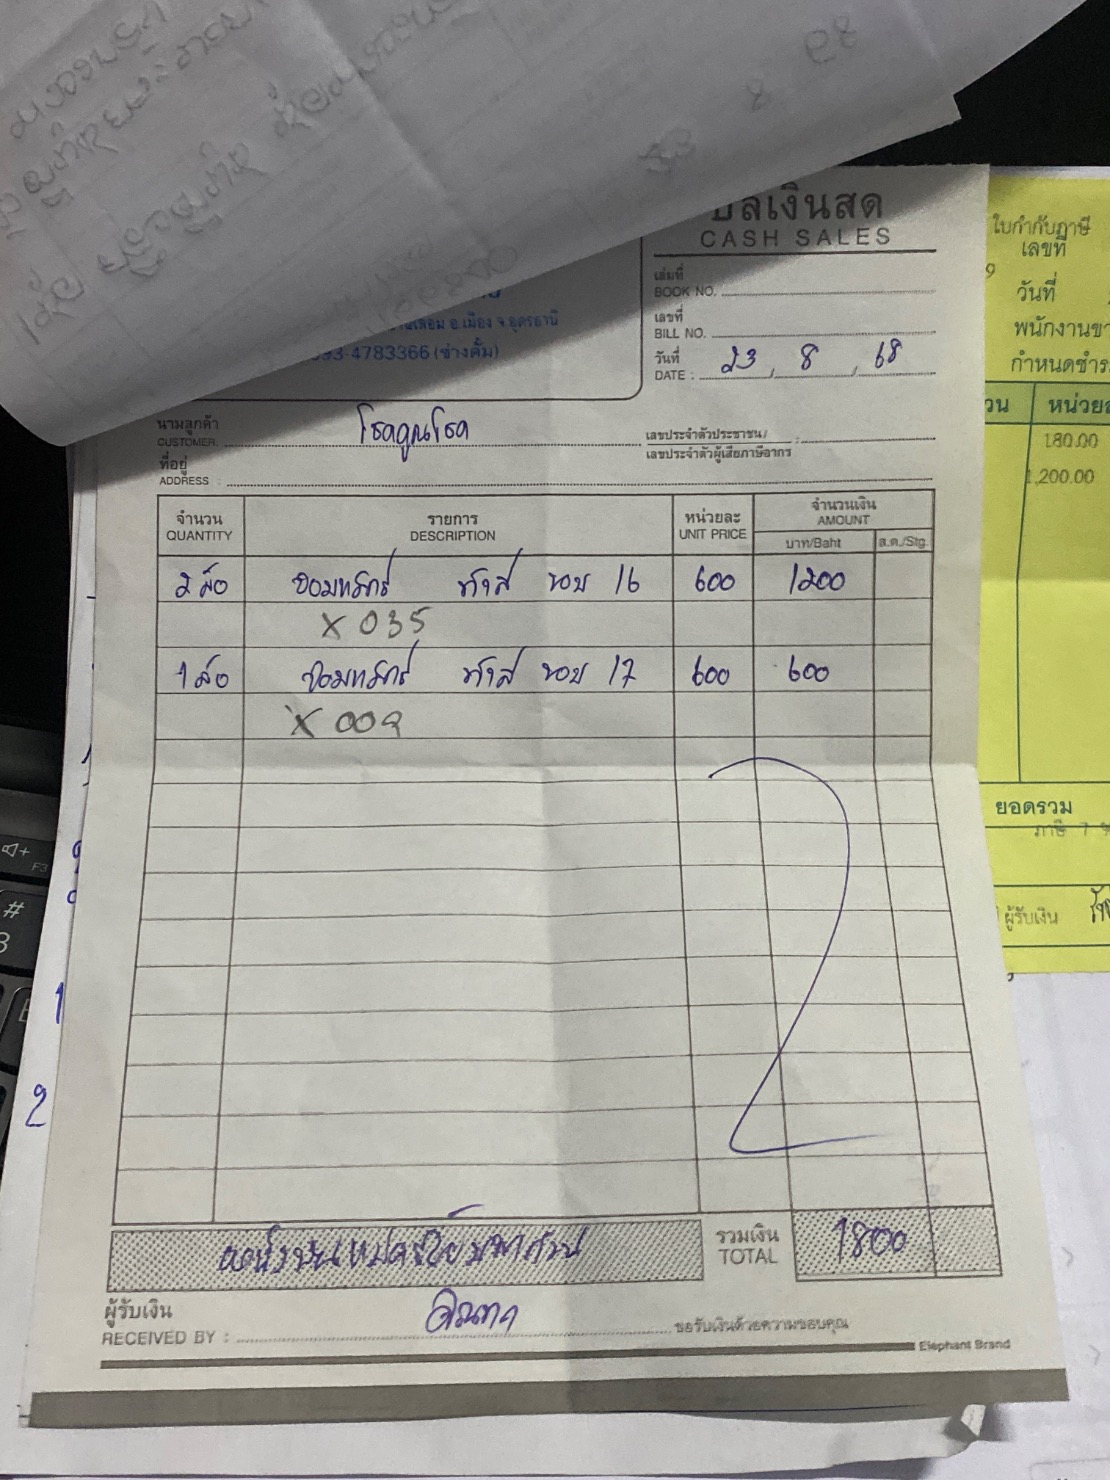 บิลเงินสด
CASH SALES
เล่มที่
BOOK NO.
เลขที่
BILL NO.
อ.เมือง จ.อุดรธานี
93-4783366 (ช่างคั้ม)
วันที่
DATE : 23 / 8 / 68
นามลูกค้า
CUSTOMER. โชคคูณโชค
เลขประจำตัวประชาชน/
เลขประจำตัวผู้เสียภาษีอากร
ที่อยู่
ADDRESS :
จำนวน รายการ หน่วยละ จำนวนเงิน
QUANTITY DESCRIPTION UNIT PRICE AMOUNT
บาท/Baht ส.ต./Stg.
2 ล้อ ซ่อมแม็กซ์ ทำสี ขอบ 16 600 1200
X 035
1 ล้อ ซ่อมแม็กซ์ ทำสี ขอบ 17 600 600
X 009
2
รวมเงิน
TOTAL 1800
ผู้รับเงิน
RECEIVED BY :
ขอรับเงินด้วยความขอบคุณ
Elephant Brand
ใบกำกับภาษี
เลขที่
9
วันที่
พนักงานขา
กำหนดชำระ
วน หน่วยล
180.00
1,200.00
ยอดรวม
ภาษี 7
ผู้รับเงิน
F3
#
1
2